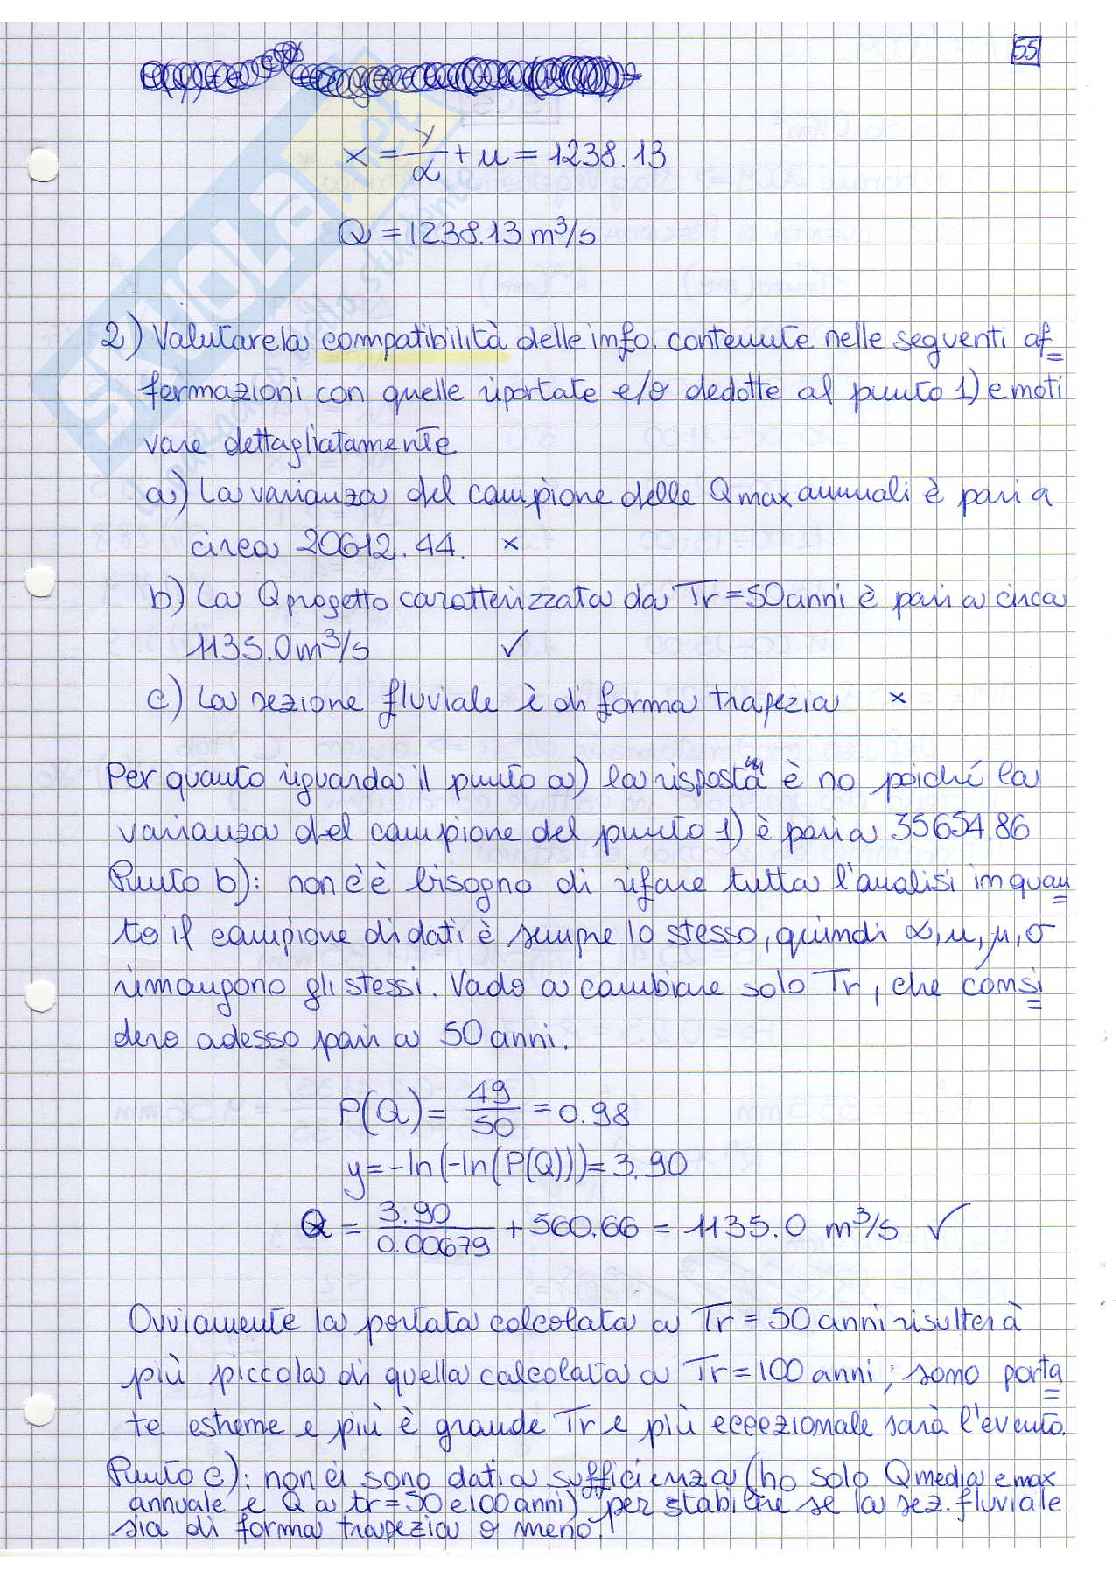 55
x = y/α + u = 1238.13
Q = 1238.13 m³/s
2) Valutare la compatibilità delle info. contenute nelle seguenti af=
fermazioni con quelle riportate e/o dedotte al punto 1) e moti
vare dettagliatamente
a) La varianza del campione delle Qmax annuali è pari a
circa 20612.44. ×
b) La Qprogetto caratterizzata da Tr = 50 anni è pari a circa
1135.0 m³/s ✓
c) La sezione fluviale è di forma trapezia ×
Per quanto riguarda il punto a) la risposta è no poiché la
varianza del campione del punto 1) è pari a 35654.86
Punto b): non c'è bisogno di rifare tutta l'analisi in quan=
to il campione di dati è sempre lo stesso, quindi α, u, μ, σ
rimangono gli stessi. Vado a cambiare solo Tr, che consi=
dero adesso pari a 50 anni.
P(Q) = 49/50 = 0.98
y = -ln(-ln(P(Q))) = 3.90
Q = 3.90/0.00679 + 560.66 = 1135.0 m³/s ✓
Ovviamente la portata calcolata a Tr = 50 anni risulterà
più piccola di quella calcolata a Tr = 100 anni; sono porta=
te estreme e più è grande Tr e più eccezionale sarà l'evento.
Punto c): non ci sono dati a sufficienza (ho solo Qmedia e max
annuale e Q a tr = 50 e 100 anni) per stabilire se la sez. fluviale
sia di forma trapezia o meno.